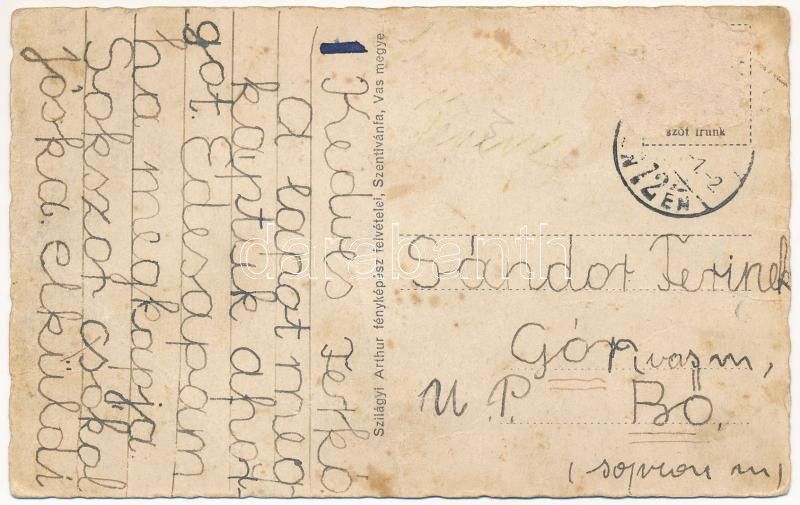 Kedves Terkó
a lapot meg
kaptuk ahot
got. Édesapám
ha megkapja
Sokszor csókol
Jóska. elküldi
Szilágyi Arthur fényképész felvételei, Szentivánfa, Vas megye
szót írunk
Sándor Terinek
Gór, vasm,
U. P. Bő.
(sopron m)
darabanth